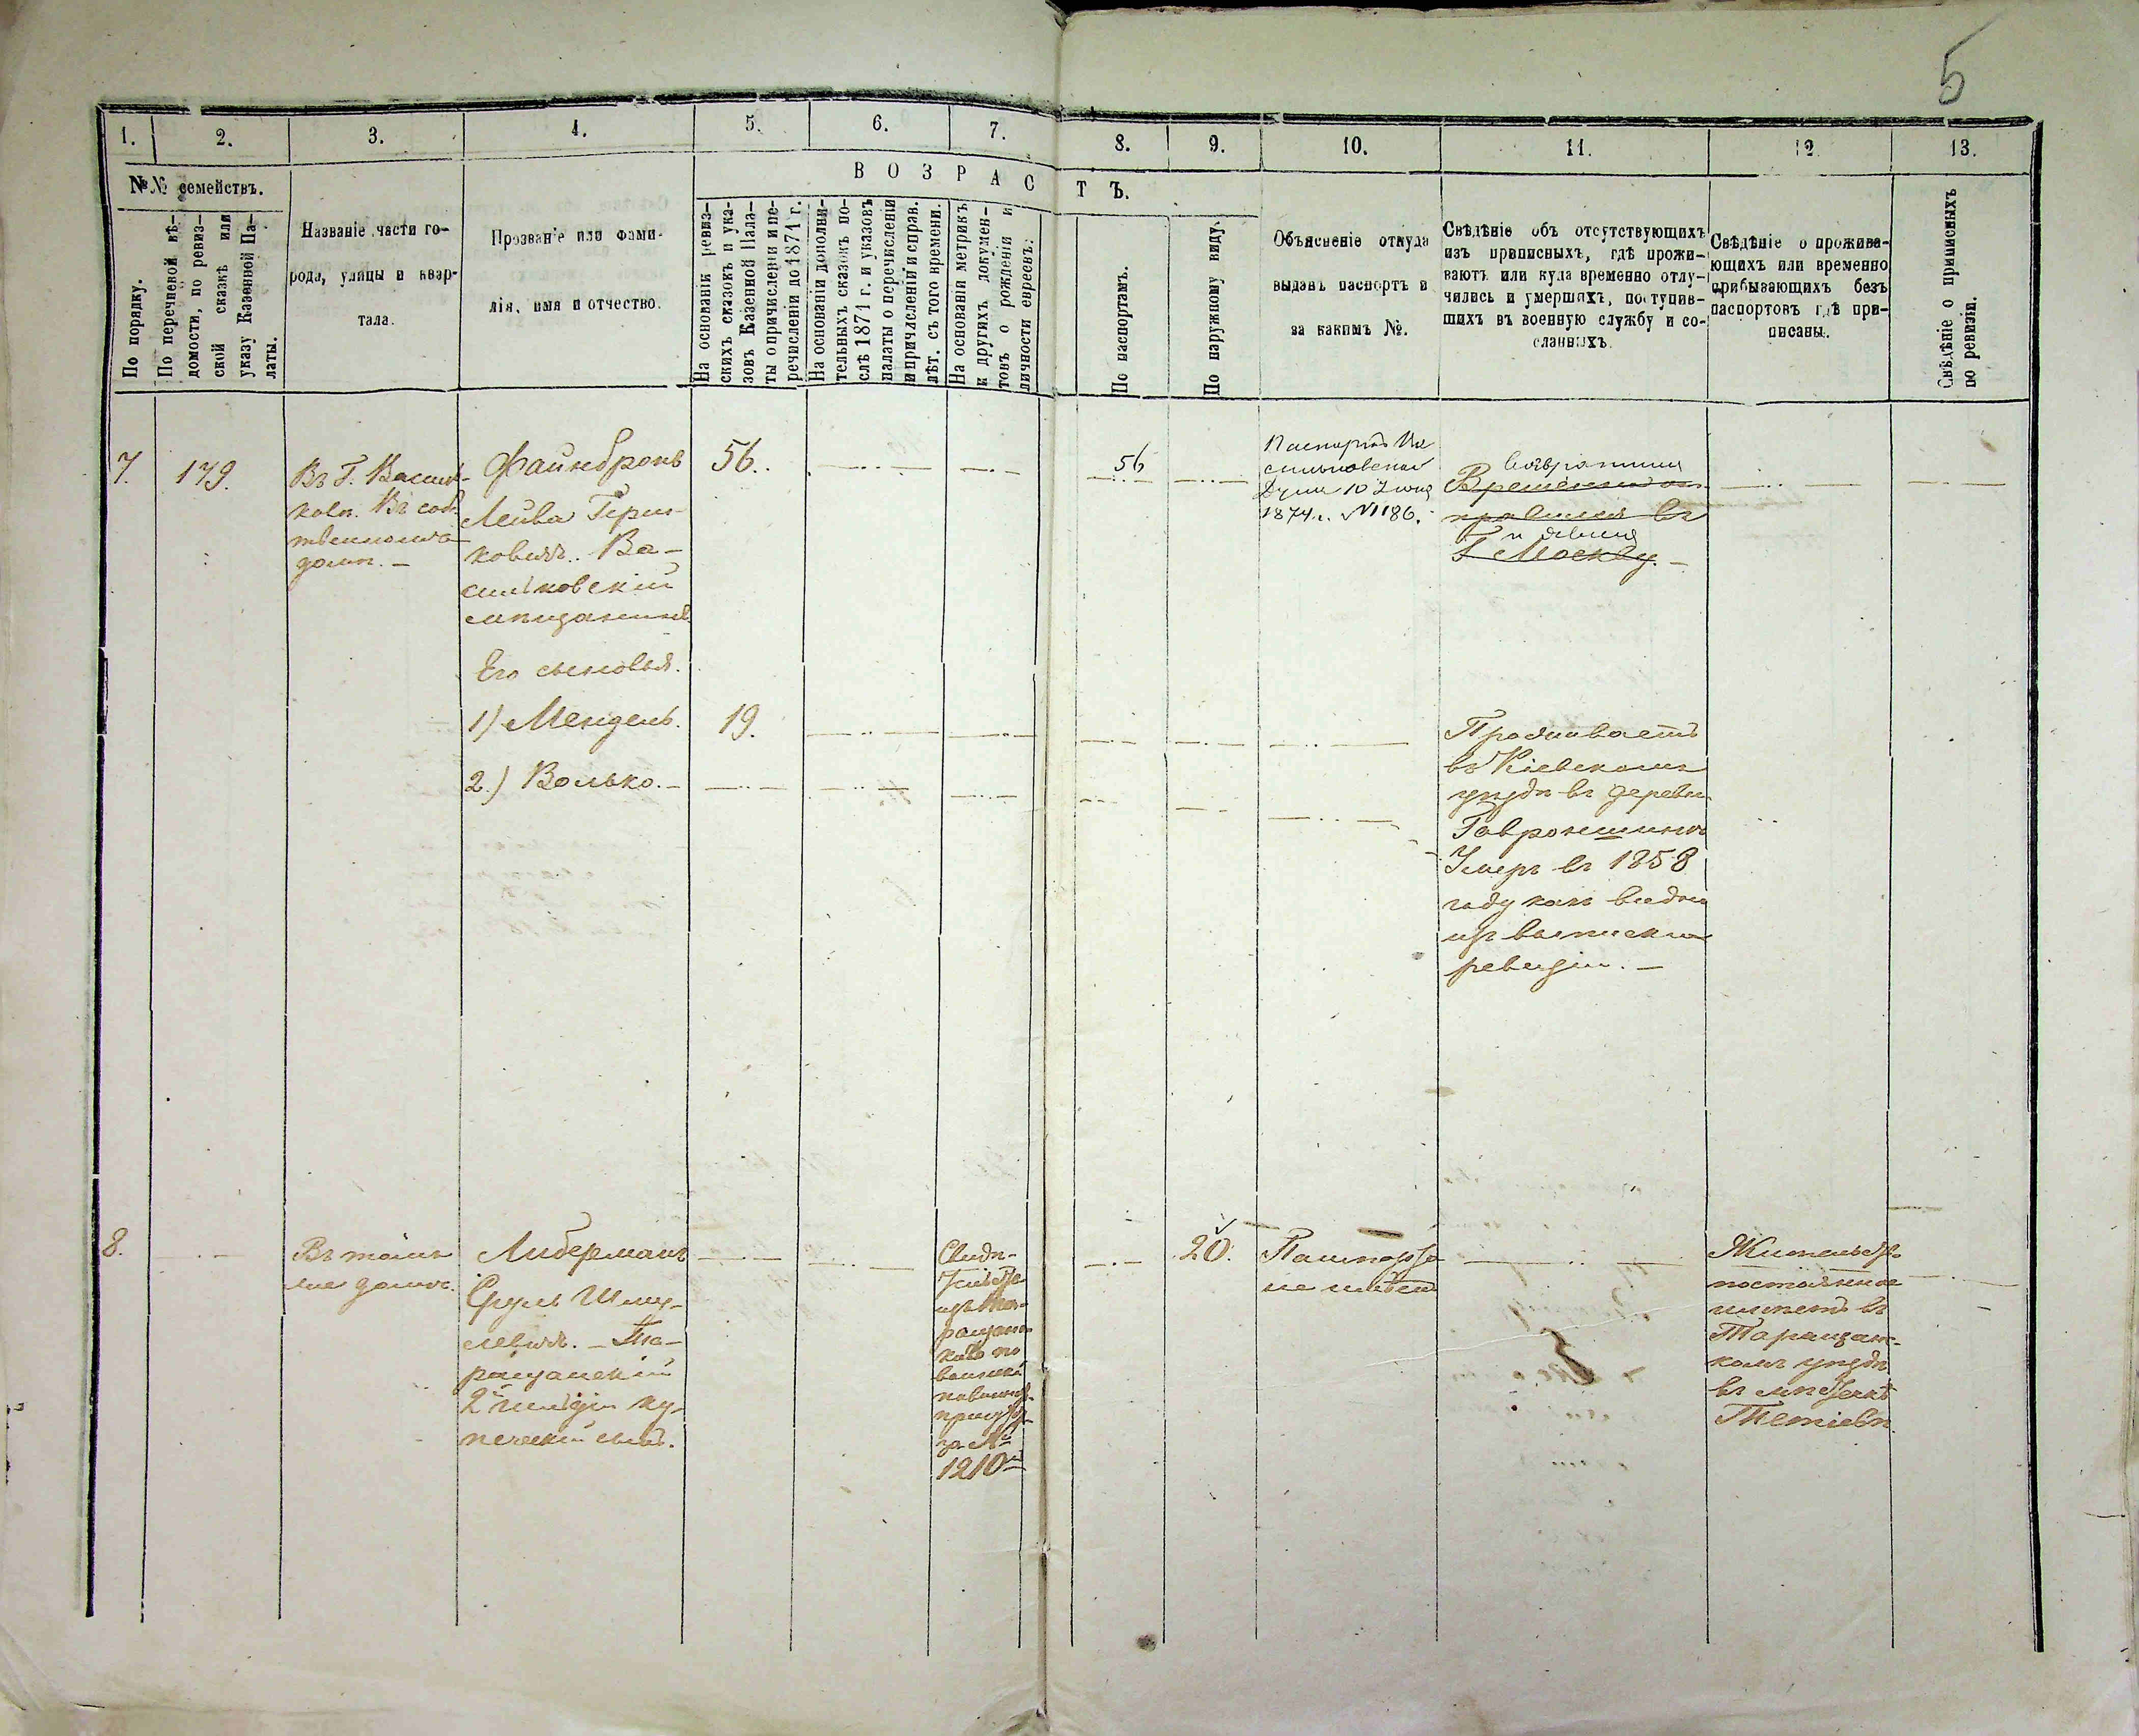 5
1.
2.
3.
4.
5.
6.
7.
8.
9.
10.
11.
12.
13.
№№ семействъ.
По порядку.
По перечневой вѣ-
домости, по ревиз-
ской сказкѣ или
указу Казенной Па-
латы.
Названіе части го-
рода, улицы и квар-
тала.
Прозваніе или фами-
лія, имя и отчество.
ВОЗРАСТЪ.
На основаніи ревиз-
скихъ сказокъ и ука-
зовъ Казенной Пала-
ты о причисленіи и пе-
речисленіи до 1871 г.
На основаніи дополни-
тельныхъ сказокъ по-
слѣ 1871 г. и указовъ
палаты о перечисленіи
и причисленій и справ.
лѣт. съ того времени.
На основаніи метрикъ
и другихъ докумен-
товъ о рожденіи и
личности евреевъ.
По паспортамъ.
По наружному виду.
Объясненіе откуда
выданъ паспортъ и
за какимъ №.
Свѣдѣніе объ отсутствующихъ
изъ приписныхъ, гдѣ прожи-
ваютъ или куда временно отлу-
чились и умершихъ, поступив-
шихъ въ военную службу и со-
сланныхъ.
Свѣдѣніе о прожива-
ющихъ или временно
прибывающихъ безъ
паспортовъ гдѣ при-
писаны.
Свѣдѣніе о приписныхъ
по ревизіи.
7.
179.
Въ Г. Василь-
ковѣ. Въ собс-
твенномъ
домѣ. —
Файнбронъ
Лейба Герш-
ковичъ. Ва-
сильковскій
мѣщанинъ
Его сыновья.
1) Мендель.
2.) Волько. —
56.
19.
56
Паспортъ Ва
сильковской
Думы 10 Іюня
1874 г. № 1186.
возвратился
Временно от-
правился въ
и явился
Г. Москву. —
Проживаетъ
въ Кіевскомъ
уѣздѣ въ деревнѣ
Гавронщинѣ
Умеръ въ 1858
году какъ видно
изъ выписки
ревизіи. —
8.
Въ томъ
же домѣ.
Либерманъ
Сруль Шму-
левичъ. — Та-
ращанскій
2й гильдіи ку-
печескій сынъ.
Свидѣ-
тельство
изъ Та-
ращанс-
каго по
воинской
повинност.
присутст.
за №
1210
20.
Пашпорта
не имѣетъ
Жительство
постоянное
имѣетъ въ
Таращанс-
комъ уѣздѣ
въ мѣстечкѣ
Тетіевѣ.